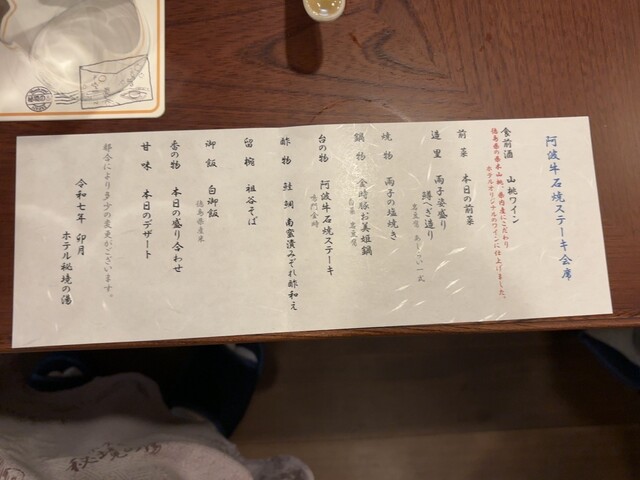 阿波牛石焼ステーキ会席
食前酒　山桃ワイン
徳島県の県木山桃、県内産にこだわり
ホテルオリジナルのワインに仕上げました。
前菜　本日の前菜
造里　両子姿盛り
鱒へぎ造り
焼物　両子の塩焼き
鍋物　金時豚お美姫鍋
白菜　岩豆腐
台の物　阿波牛石焼ステーキ
鳴門金時
酢物　南蛮漬みぞれ酢和え
留椀　祖谷そば
御飯　白御飯
徳島県産米
香の物　本日の盛り合わせ
甘味　本日のデザート
都合により多少の変更がございます。
令和七年　卯月
ホテル秘境の湯